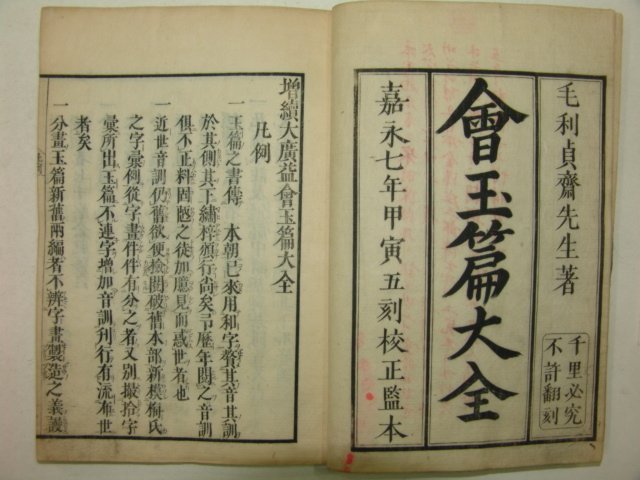 毛利貞齋先生著
千里必究
不許翻刻
會玉篇大全
嘉永七年甲寅五刻校正監本
增續大廣益會玉篇大全
凡例
一玉篇之書傳 本朝已來用和字贅其音其訓
於其側其下繡梓頒行尚矣弓歷年閱之音訓
俱不正粹固
之徒加
見而惑世者也
一近世音訓仍舊欲便撿閱破舊本部新模梅氏
之字彙例從字畫件件有分之者又別掇拾字
彙所出玉篇不連字增加音訓刊行有流布世
者矣
一分畫玉篇新舊兩編者不辨字畫製造之義